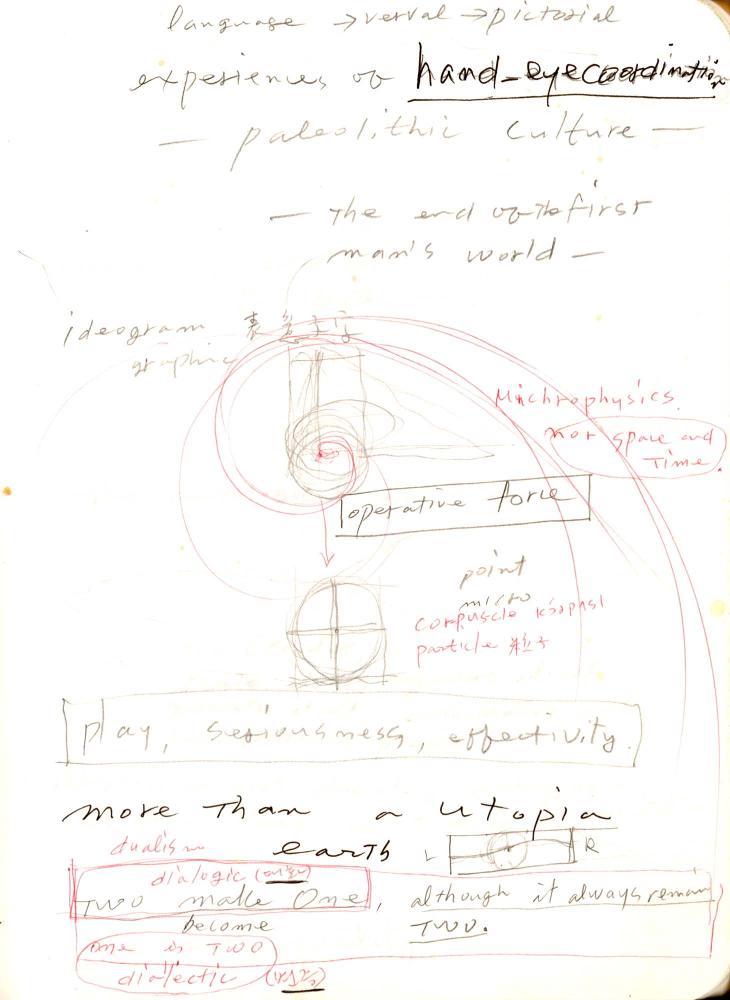 language → verval → pictorial
experiences of hand-eye coordination
— paleolithic culture —
— the end of the first
man's world —
ideogram 表意文字
graphic
Michrophysics.
nor space and
Time
operative force
point
micro
corpuscle
particle 粒子
play, seriousness, effectivity.
more than a utopia
dualism
earth L R
dialogic
TWO make One, although it always remain
become TWO.
One is TWO
dialectic